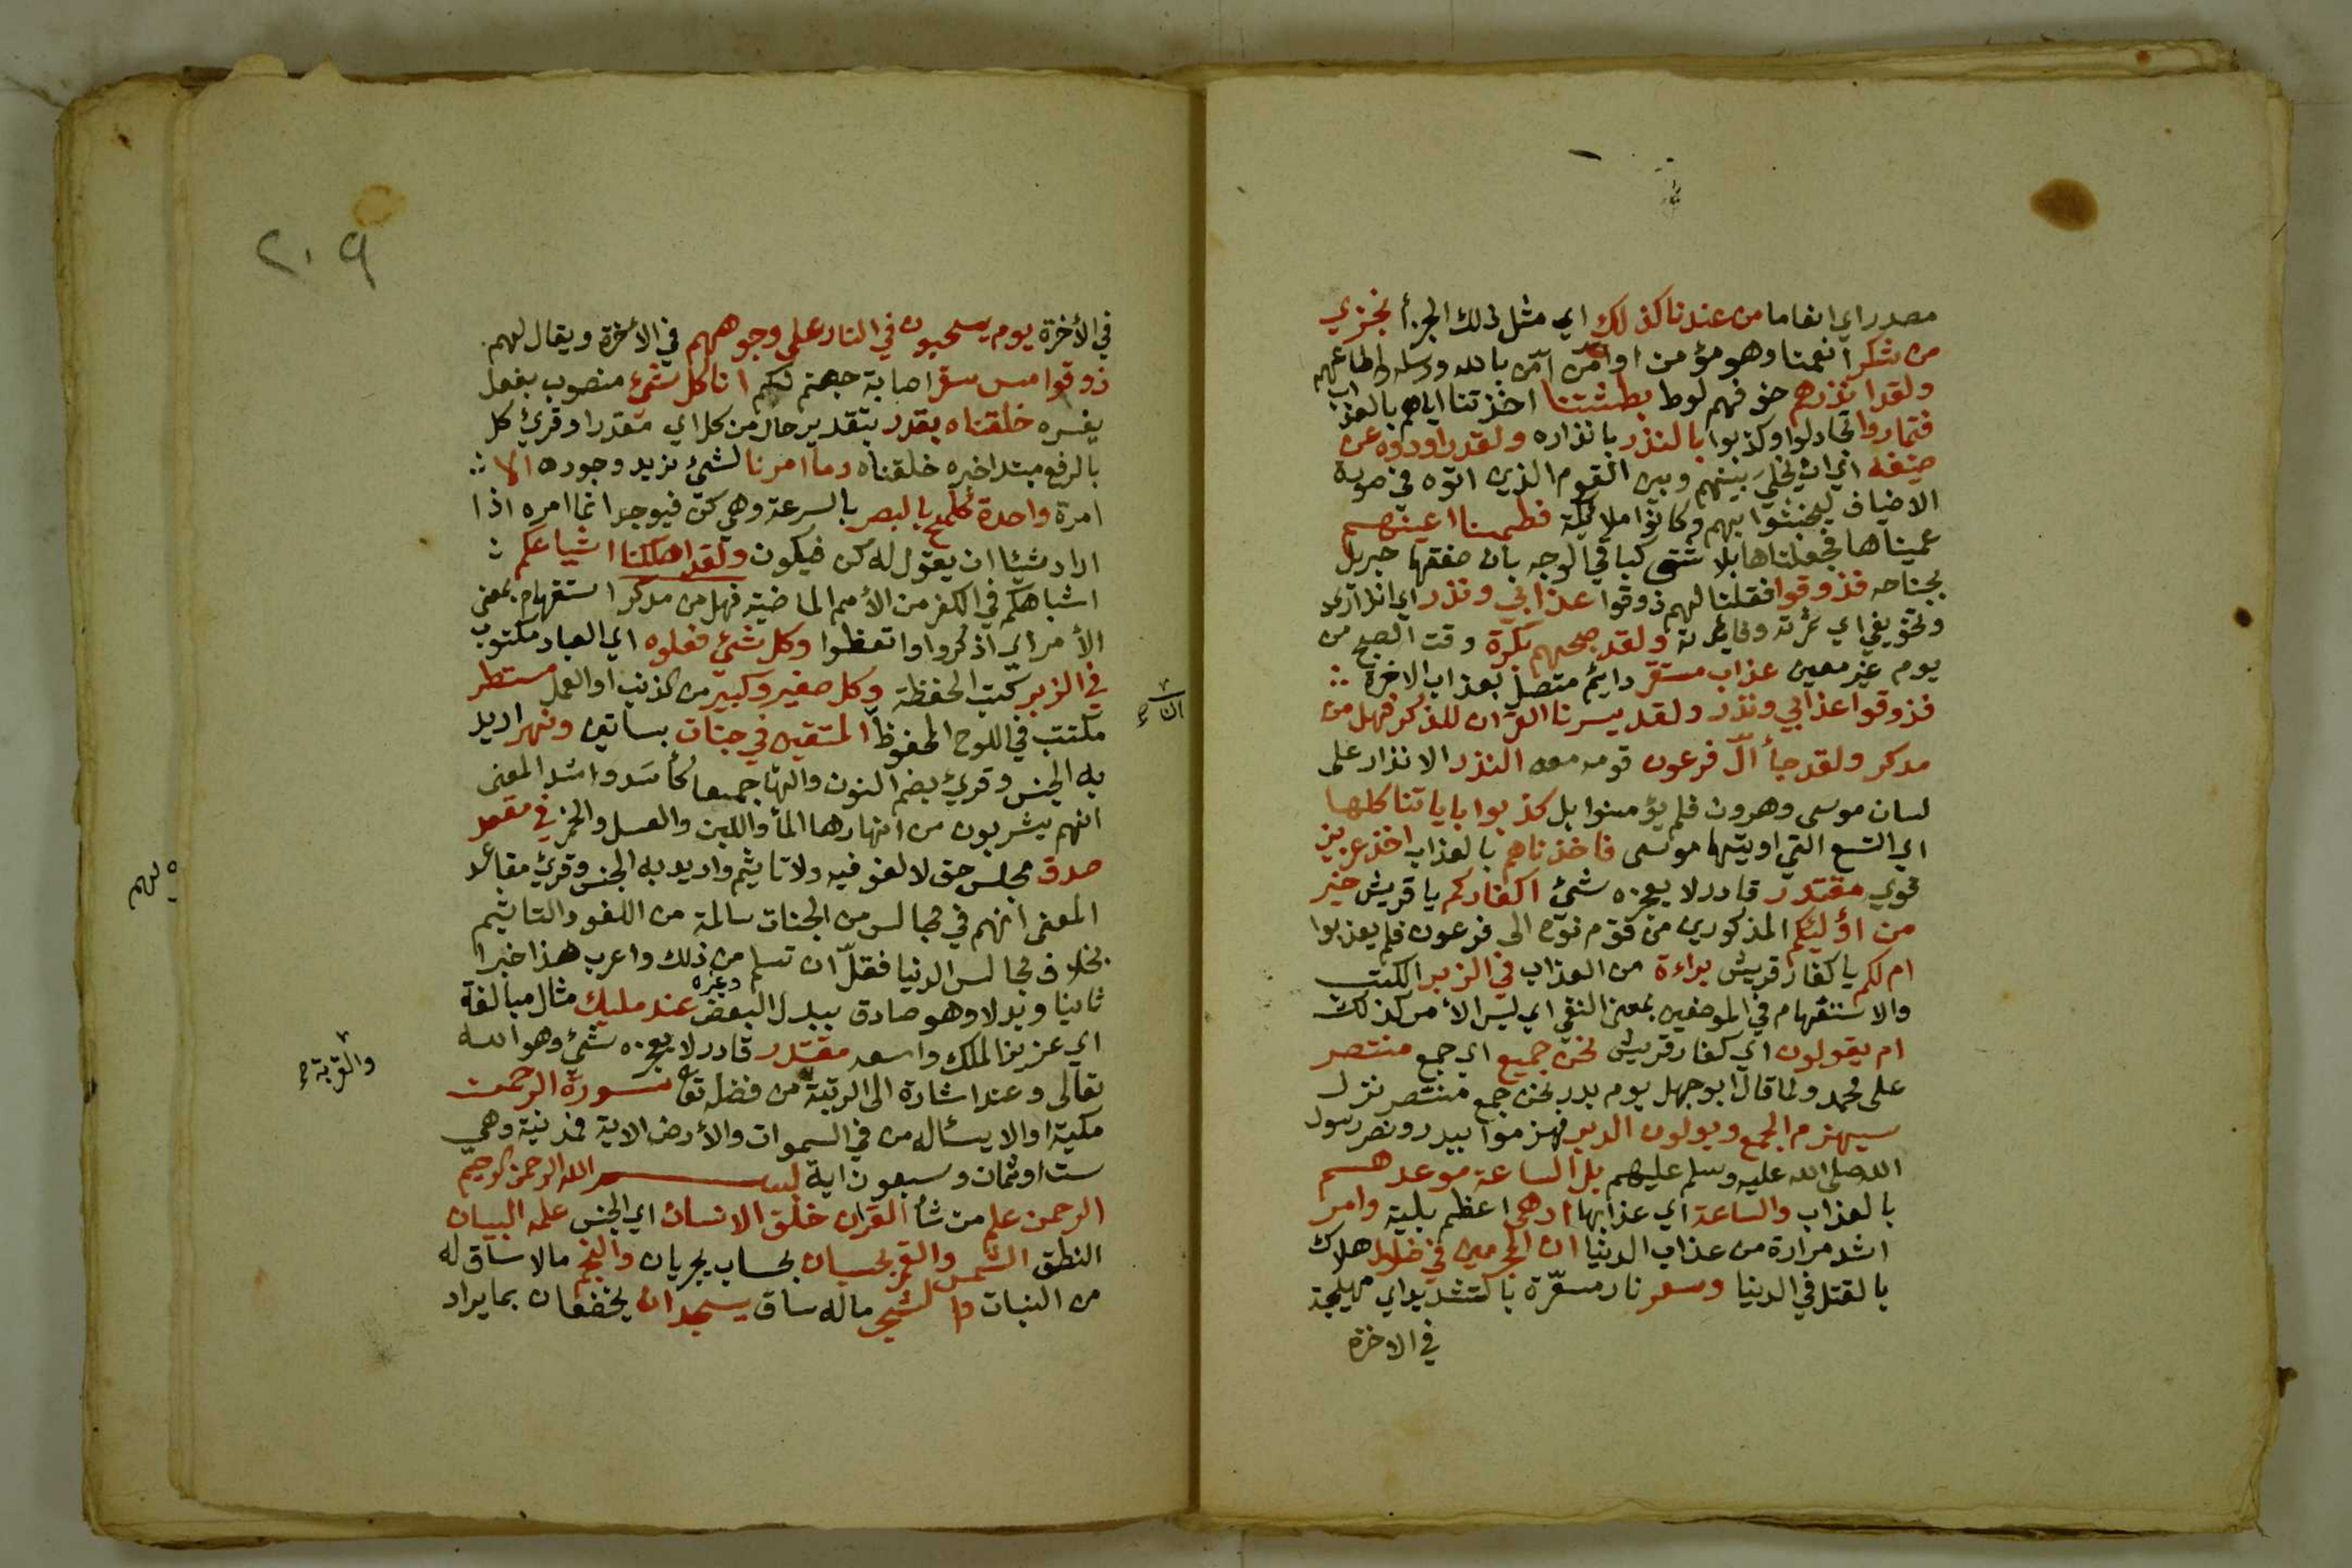 مصدر اي انعاما من عندنا كذلك اي مثل ذلك الجزأ نجزي
من شكر انعمنا وهو مؤمن او امن امّن بالله ورسله واطاعهم
ولقد انذرهم خوفهم لوط بطشتنا اخذتنا اياهم بالعذاب
فتماروا تجادلوا وكذبوا بالنذر بانذاره ولقد راودوه عن
ضيفه اي ان يخلي بينهم وبين القوم الذين اتوه في صورة
الاضياف ليخبثوا بهم وكانوا ملائكة فطمسنا اعينهم
عميناها فجعلناها بلا شق كباقي الوجه بان صفقها جبريل
بجناحه فذوقوا فقلنا لهم ذوقوا عذابي ونذر اي انذاري
وتخويفي اي ثمرته وفائدته ولقد صبحهم بكرة وقت الصبح من
يوم غير معين عذاب مستقر دايم متصل بعذاب الاخرة
فذوقوا عذابي ونذر ولقد يسرنا القران للذكر فهل من
مدكر ولقد جأ آل فرعون قومه معه النذر الانذار على
لسان موسى وهرون فلم يؤمنوا بل كذبوا باياتنا كلها
اي التسع التي اوتيها موسى فاخذناهم بالعذاب اخذ عزيز
قوي مقتدر قادر لا يعجزه شئ اكفاركم يا قريش خير
من اؤلئكم المذكورين من قوم نوح الى فرعون فلم يعذبوا
ام لكم يا كفار قريش براءة من العذاب في الزبر الكتب
والاستفهام في الموضعين بمعنى النفي اي ليس الأمر كذلك
ام يقولون اي كفار قريش نحن جميع اي جمع منتصر
على محمد ولما قال ابو جهل يوم بدر نحن جمع منتصر نزل
سيهزم الجمع ويولون الدبر فهزموا ببدر ونصر رسول
الله صلى الله عليه وسلم عليهم بل الساعة موعدهم
بالعذاب والساعة اي عذابها ادهى اعظم بلية وامر
اشد مرارة من عذاب الدنيا ان المجرمين في ضلال هلاك
بالقتل في الدنيا وسعر نار مسعّرة بالتشديد اي مهيجة
في الاخرة
٢٠٩
في الأخرة يوم يسحبون في النار على وجوههم في الأخرة ويقال لهم
ذوقوا مس سقر اصابة جهنم لكم انا كل شئ منصوب بفعل
يفسره خلقناه بقدر بتقدير حال من كل اي مقدرا وقرئ كل
بالرفع مبتدا خبره خلقناه وما امرنا لشئ نريد وجوده الا
امرة واحدة كلمح بالبصر بالسرعة وهي كن فيوجد انما امره اذا
اراد شيئا ان يقول له كن فيكون ولقد اهلكنا اشياعكم
اشباهكم في الكفر من الأمم الماضية فهل من مدكر استفهام بمعنى
الأمر اي اذكروا واتعظوا وكل شئ فعلوه اي العباد مكتوب
في الزبر كتب الحفظة وكل صغير وكبير من الذنب او العمل مستطر
مكتتب في اللوح المحفوظ ان المتقين في جنات بساتين ونهر اريد
به الجنس وقرئ بضم النون والها جمعا كأسد واسد المعنى
انهم يشربون من انهارها المأ واللبن والعسل والخمر في مقعد
صدق مجلس حق لا لغو فيه ولا تاثيم واريد به الجنس وقرئ مقاعد
المعنى انهم في مجالس من الجنات سالمة من اللغو والتاثيم
بخلاف مجالس الدنيا فقلّ ان تسلم من ذلك واعرب هذا خبرا
ثانيا وبدلا وهو صادق ببدل البعض وغيره عند مليك مثال مبالغة
اي عزيز الملك واسعه مقتدر قادر لا يعجزه شئ وهو الله
تعالى وعند اشارة الى الرتبة من فضله تعا سورة الرحمن
مكية او الا يسأله من في السموات والأرض الاية فمدنية وهي
ست او ثمان وسبعون اية بسم الله الرحمن الرحيم
الرحمن علم من شأ القران خلق الانسان اي الجنس علمه البيان
النطق الشمس والقمر بحسبان بحساب يجريان والنجم مالا ساق له
من النبات والشجر ماله ساق يسجدان يخضعان بما يراد
والقربة